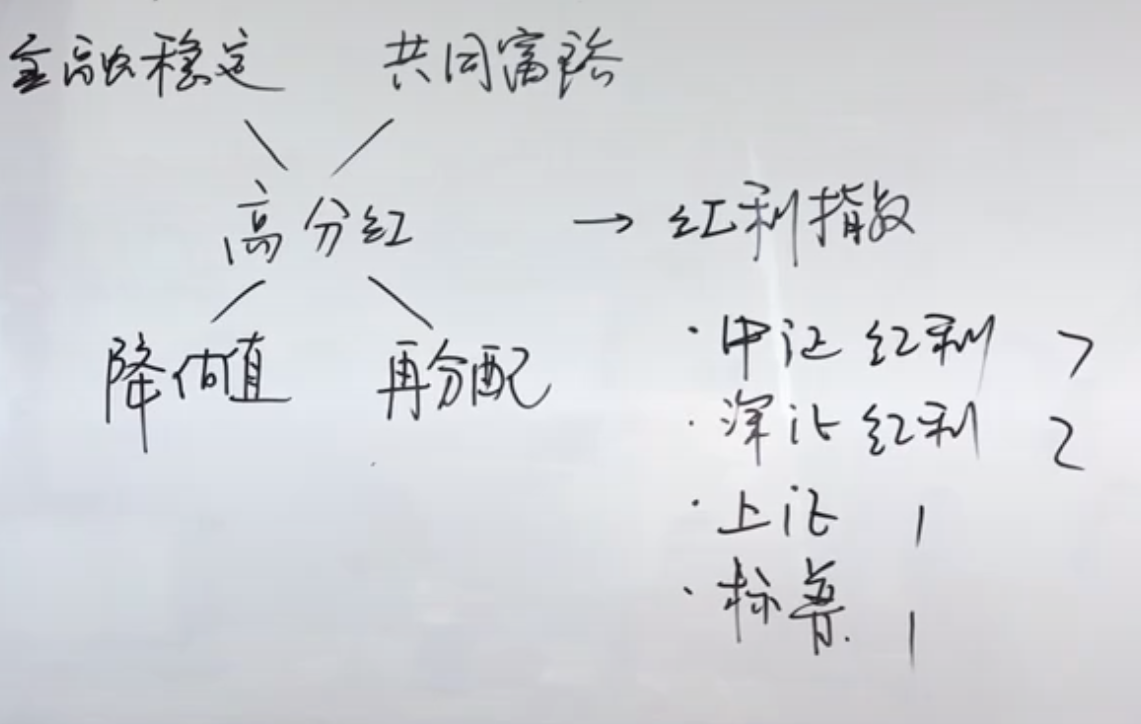 金融稳定 共同富裕
高分红 → 红利指数
降估值 再分配
· 中证红利 7
· 深证红利 2
· 上证 1
· 标普 1